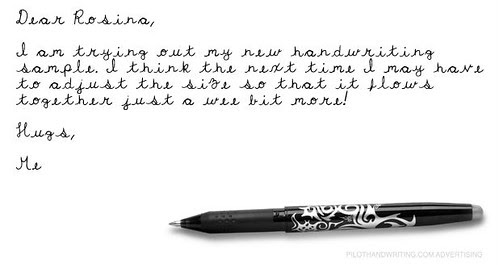 Dear Rosina,
I am trying out my new handwriting
sample. I think the next time I may have
to adjust the size so that it flows
together just a wee bit more!
Hugs,
Me
PILOTHANDWRITING.COM ADVERTISING